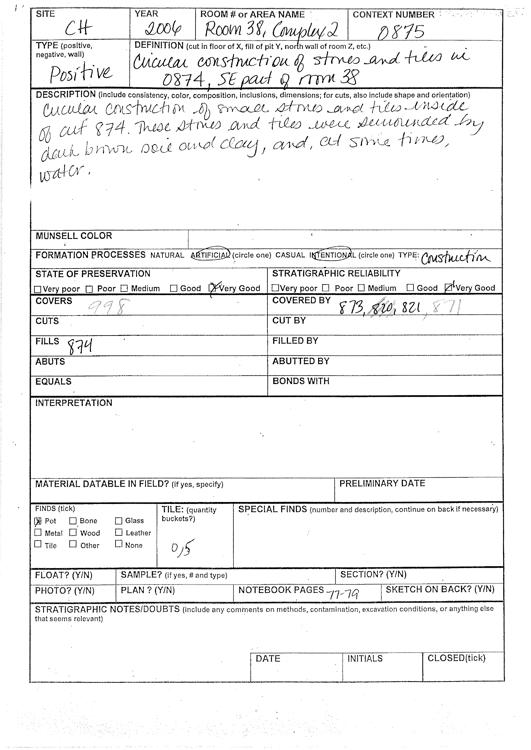 SITE CH YEAR 2006 ROOM # or AREA NAME Room 38, Complex 2 CONTEXT NUMBER 0875
TYPE (positive, negative, wall) Positive
DEFINITION (cut in floor of X, fill of pit Y, north wall of room Z, etc.)
Circular construction of stones and tiles in
0874, SE part of room 38
DESCRIPTION (include consistency, color, composition, inclusions, dimensions; for cuts, also include shape and orientation)
Circular construction of small stones and tiles inside
of cut 874. These stones and tiles were surrounded by
dark brown soil and clay, and, at some times,
water.
MUNSELL COLOR
FORMATION PROCESSES NATURAL ARTIFICIAL (circle one) CASUAL INTENTIONAL (circle one) TYPE: Construction
STATE OF PRESERVATION STRATIGRAPHIC RELIABILITY
Very poor Poor Medium Good Very Good Very poor Poor Medium Good Very Good
COVERS 998 COVERED BY 873, 820, 821, 871
CUTS CUT BY
FILLS 874 FILLED BY
ABUTS ABUTTED BY
EQUALS BONDS WITH
INTERPRETATION
MATERIAL DATABLE IN FIELD? (if yes, specify) PRELIMINARY DATE
FINDS (tick) TILE: (quantity buckets?) SPECIAL FINDS (number and description, continue on back if necessary)
Pot Bone Glass
Metal Wood Leather
Tile Other None 0,5
FLOAT? (Y/N) SAMPLE? (if yes, # and type) SECTION? (Y/N)
PHOTO? (Y/N) PLAN ? (Y/N) NOTEBOOK PAGES 77-79 SKETCH ON BACK? (Y/N)
STRATIGRAPHIC NOTES/DOUBTS (include any comments on methods, contamination, excavation conditions, or anything else
that seems relevant)
DATE INITIALS CLOSED(tick)